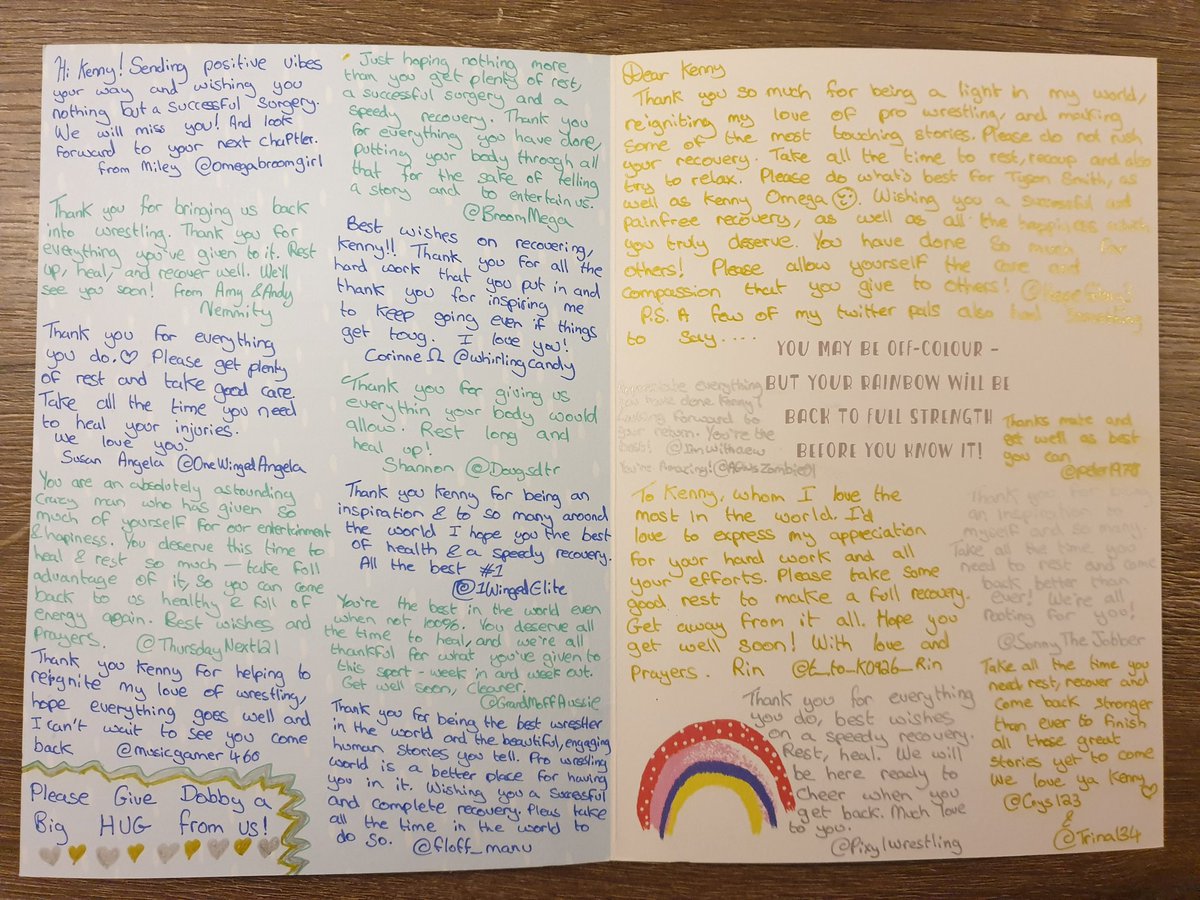 Hi Kenny! Sending positive vibes
your way and wishing you
nothing but a successful surgery.
We will miss you! And look
forward to your next chaPtler.
from Miley @omegabroomgirl
Thank you for bringing us back
into wrestling. Thank you for
everything you've given to it. Rest
up, heal, and recover well. We'll
see you soon! from Amy & Andy
Nemmity
Thank you for everything
you do. ♡ Please get plenty
of rest and take good care.
Take all the time you need
to heal your injuries.
We love you.
Susan Angela @OneWingedAngela
You are an absolutely astounding
Crazy man who has given so
much of yourself for our entertainment
& hapiness. You deserve this time to
heal & rest so much — take full
advantage of it, so you can come
back to us healthy & full of
energy again. Best wishes and
prayers. @ThursdayNext121
Thank you Kenny for helping to
reignite my love of wrestling,
hope everything goes well and
I can't wait to see you come
back @musicgamer460
Please Give Dobby a
Big HUG from us!
Just hoping nothing more
than you get plenty of rest,
a successful surgery and a
speedy recovery. Thank you
for everything you have done,
putting your body through all
that for the sake of telling
a story and to entertain us.
@BroomMega
Best wishes on recovering,
Kenny!! Thank you for all the
hard work that you put in and
thank you for inspiring me
to keep going even if things
get toug. I love you!
Corinne Ω @whirlingcandy
Thank you for giving us
everythin your body would
allow. Rest long and
heal up!
Shannon @Dougsdtr
Thank you Kenny for being an
inspiration & to so many around
the world I hope you the best
of health & a speedy recovery.
All the best #1
@1WingedElite
You're the best in the world even
when not 100%. You deserve all
the time to heal, and we're all
thankful for what you've given to
this sport - week in and week out.
Get well soon, Cleaner.
@GrandMoffAussie
Thank you for being the best wrestler
in the world and the beautiful, engaging
human stories you tell. Pro wrestling
world is a better place for having
you in it. Wishing you a sucessful
and complete recovery. Pleas take
all the time in the world to
do so. @floff_manu
Dear Kenny
Thank you so much for being a light in my world,
reigniting my love of pro wrestling, and making
some of the most touching stories. Please do not rush
your recovery. Take all the time to rest, recoup and also
try to relax. Please do what's best for Tyson Smith, as
well as Kenny Omega. Wishing you a successful and
painfree recovery, as well as all the happiness which
you truly deserve. You have done so much for
others! Please allow yourself the care and
compassion that you give to others!
P.S. A few of my twitter pals also had something
to say....
YOU MAY BE OFF-COLOUR -
BUT YOUR RAINBOW WILL BE
BACK TO FULL STRENGTH
BEFORE YOU KNOW IT!
everything
you have done Kenny!
Looking forward to
your return. You're the
best! @Imwithaew
You're Amazing!
Thanks mate and
get well as best
you can
@peter1978
To Kenny, whom I love the
most in the world. I'd
love to express my appreciation
for your hard work and all
your efforts. Please take some
good rest to make a full recovery.
Get away from it all. Hope you
get well soon! With love and
Prayers. Rin @t_to_K0926_Rin
Thank you for being
an inspiration to
myself and so many.
Take all the time you
need to rest and come
back better than
ever! We're all
rooting for you!
@SonnyTheJobber
Thank you for everything
you do, best wishes
on a speedy recovery.
Rest, heal. We will
be here ready to
Cheer when you
get back. Much love
to you.
@Pixy1wrestling
Take all the time you
need rest, recover and
come back stronger
than ever to finish
all those great
stories yet to come
We love ya Kenny ♡
@Cays123
&
@Trina134